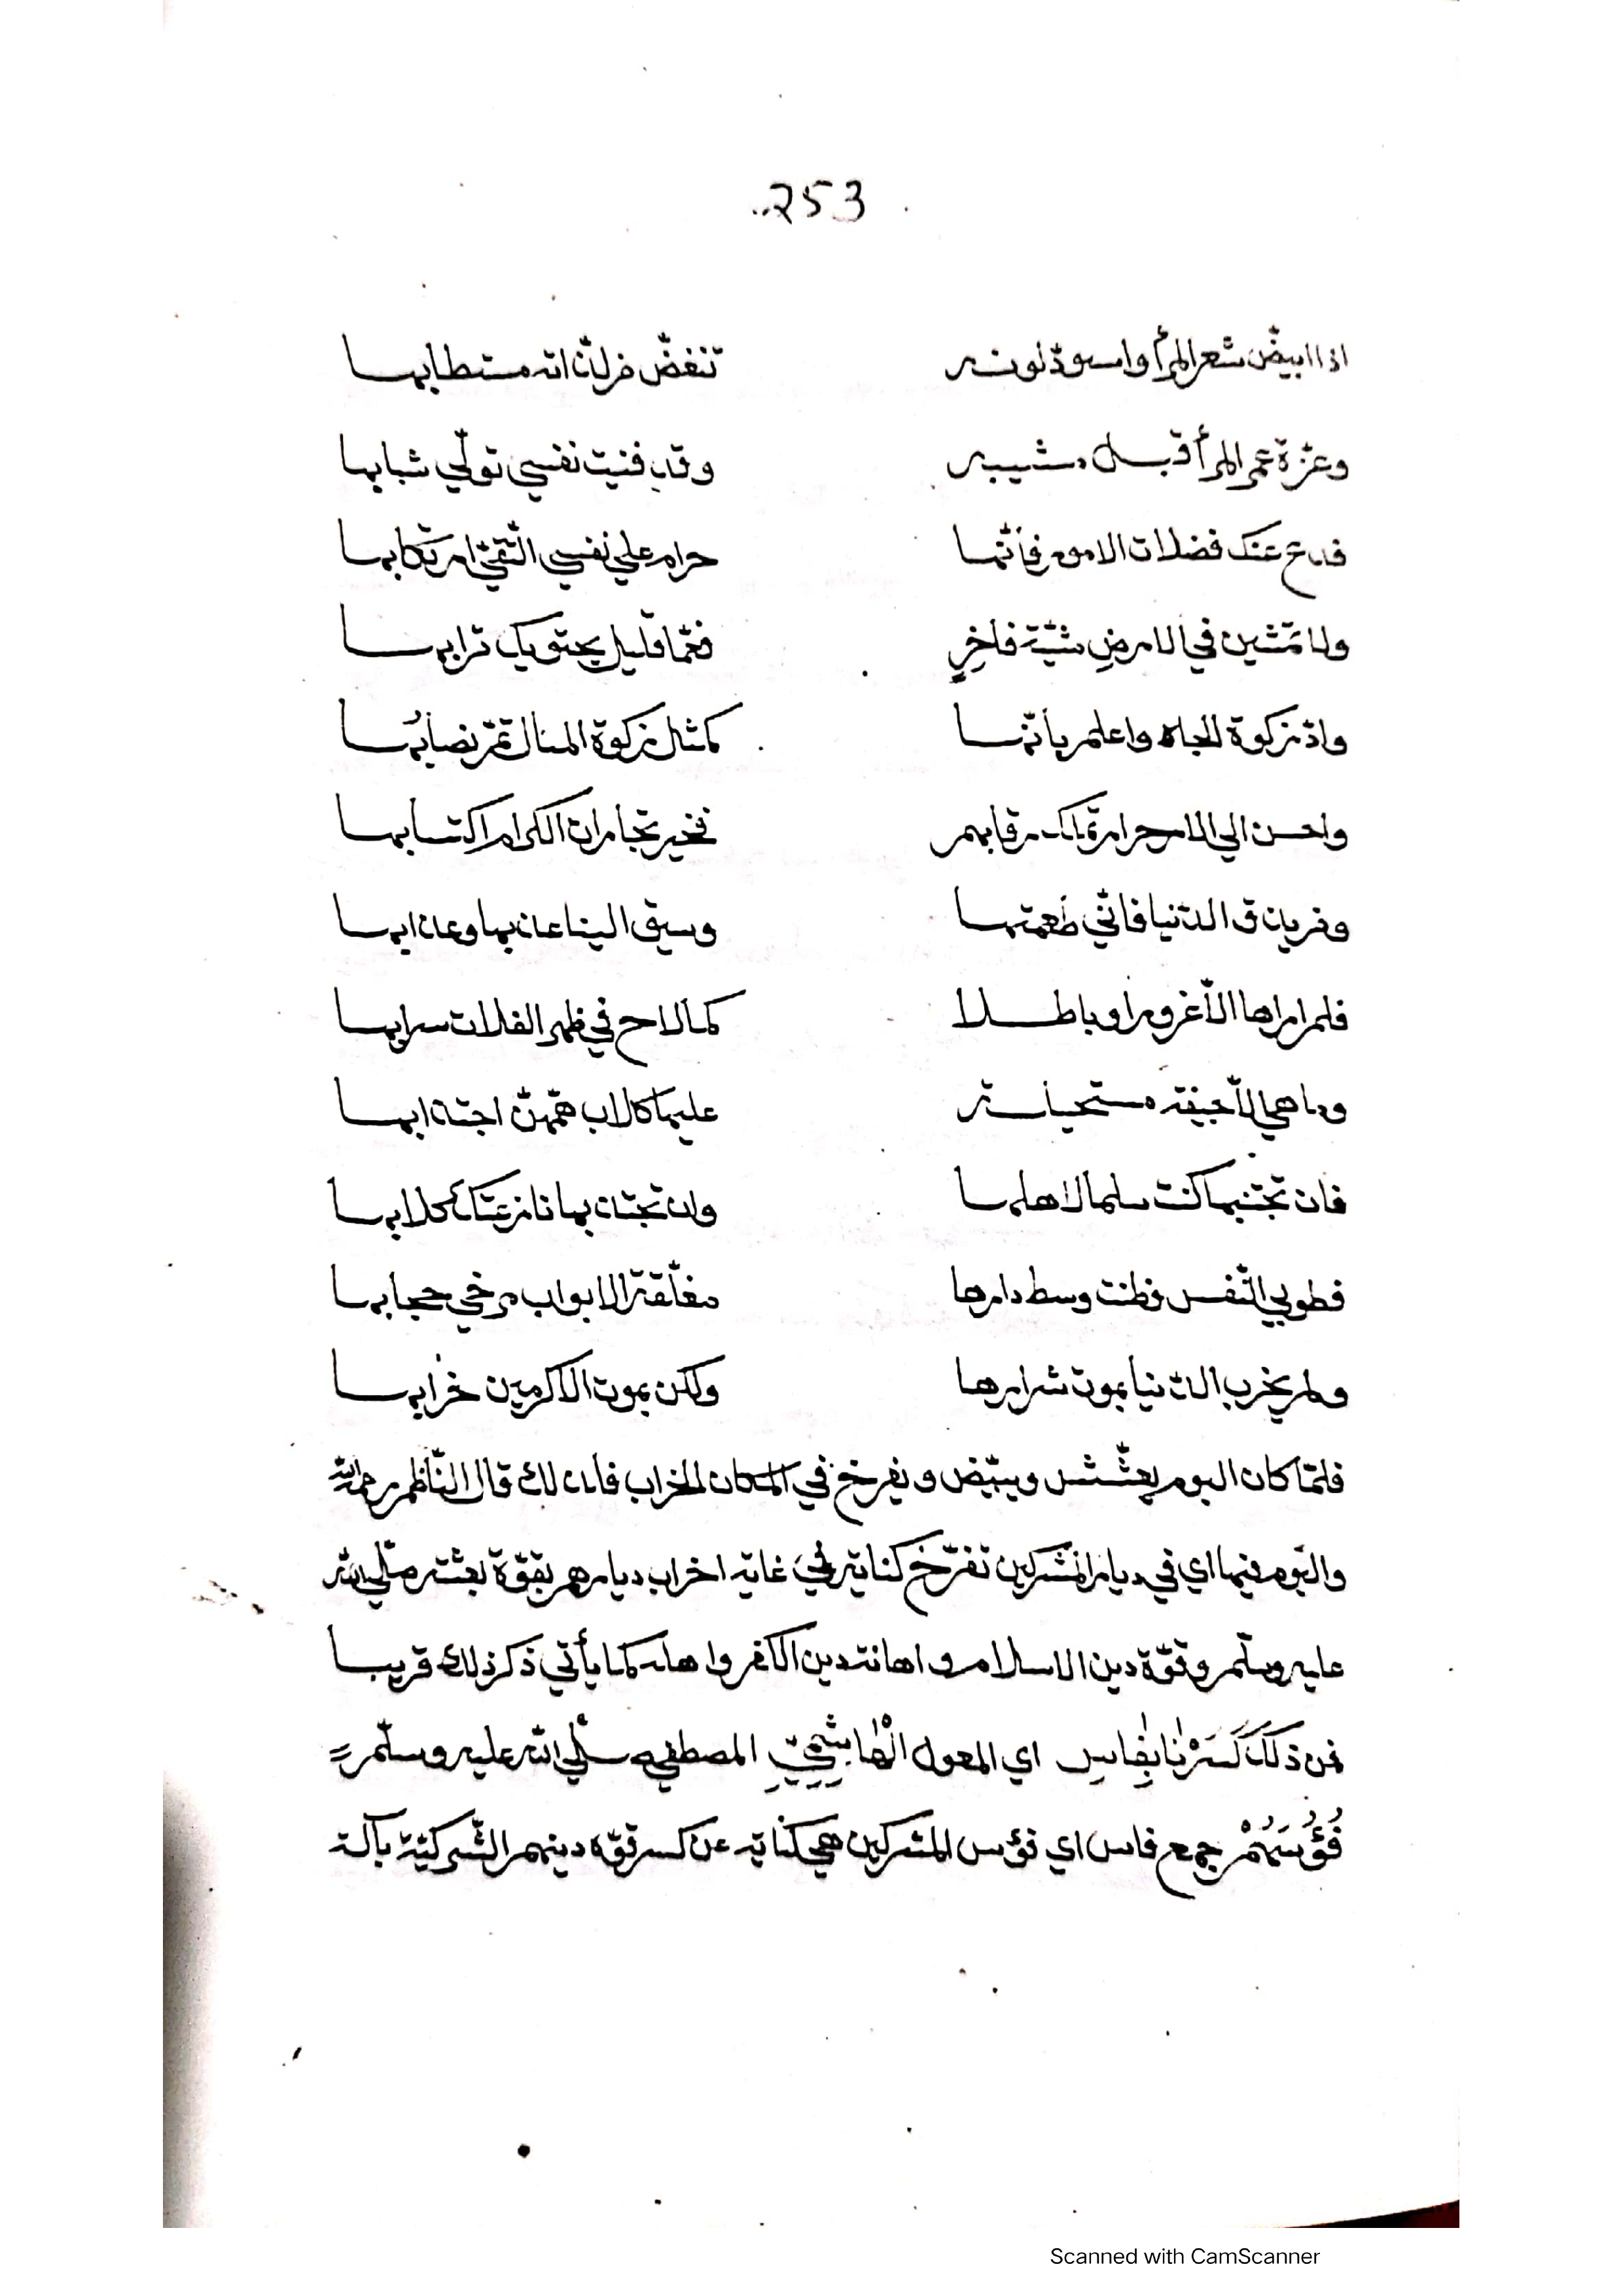 253
اذا ابيضّ شعر المرأ واسودّ لونه تنغضّ من لذّاته مستطابها
وعزّة عمر المرأ قبل مشيبه وقد فنيت نفسي تولّي شبابها
فدع عنك فضلات الامور فأنّها حرام علي نفسي التّقيّ ارتكابها
ولا تمشين في الارضِ مشيّة فاخِرٍ فعمّا قليل يحتويك ترابها
وادّ زكوة الجاه واعلم بأنّها كمثل زكوة المال تمّ نصابُها
واحسن الي الاحرار تملك رقابهم فخير تجارات الكرام اكتسابها
ومن يذق الدّنيا فانّي طَعمتها وسيق الينا عذبها وعذابها
فلم ارها الّا غرورا وباطلا كما لاح في ظهر الفلات سرابها
وما هي الّا جيفة مستحيلة عليها كلاب همّهنّ اجتذابها
فان تجتنبها كنت سلما لاهلها وان تجتذبها نازعتك كلابها
فطوبي لنّفس وطنت وسط دارها مغلّقة الابواب مرخي حجابها
ولم يخرب الدنيا بموت شرارها ولكن بموت الاكرمين خرابها
فلمّا كان البوم يعشّش ويبيّض ويفرخ في المكان الخراب فلذلك قال النّاظم رحمه الله
والبوم فيها اي في ديار المشركين تفرّخ كناية في غاية اخراب ديارهم بقوّة بعثته صلّي الله
عليه وسلّم وقوّة دين الاسلام و اهانة دين الكفر واهله كما يأتي ذكر ذلك قريبا
فمن ذلك كَسَرْنا بِفاسِ اي المعول الْهاشِمِيِّ المصطفي صلّي الله عليه وسلّم =
فُؤُسَهُمْ جمع فاس اي فؤس المشركين هي كناية عن كسر قوّة دينهم الشّركيّة بآلة